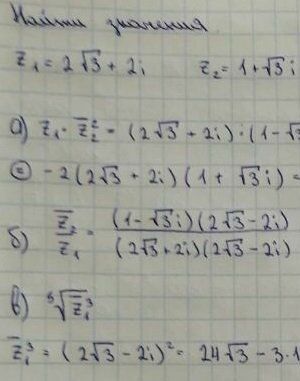 Найти значения
z₁ = 2√3 + 2i z₂ = 1 + √3 i
а) z₁ · z̄₂² = (2√3 + 2i) · (1 - √3
⊜ -2(2√3 + 2i)(1 + √3 i) =
б) z̄₂/z₁ = (1 - √3 i)(2√3 - 2i)/(2√3 + 2i)(2√3 - 2i)
в) ⁵√z̄₁³
z̄₁³ = (2√3 - 2i)² = 24√3 - 3 · 1